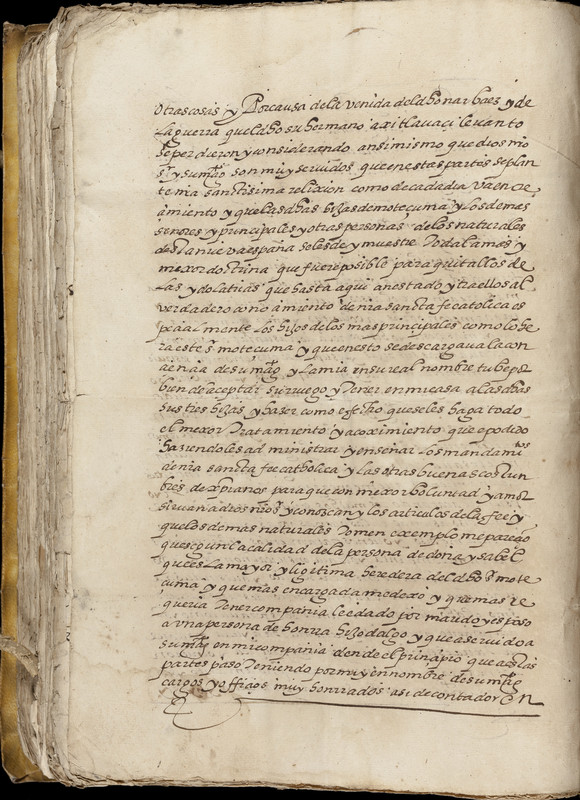 otras cosas y Por causa de la venida del dho narbaes y de
la guerra que el dho su hermano axitlavaçi levanto
se perdieron y considerando ansimismo que dios nro
sr y su magt son muy servidos que en estas partes se plan
te nra sanctisima relixion como de cada dia va en cre
çimiento y que las dhas hijas de motecuma y los demas
señores y principales y otras personas de los naturales
desta nueva españa se les de y muestre toda la mas y
mexor dotrina que fuere posible para quitallos de
las ydolatrias que hasta aqui an estado y traellos al
verdadero conocimiento de nra sancta fee catolica es
peçialmente los hijos de los mas principales como lo he
ra este sr motecuma y que en esto se descargava la con
ciencia de su magt y la mia en su real nombre tube por
bien de aceptar su ruego y tener en mi casa a las dhas
sus tres hijas y haser como e fecho que se les haga todo
el mexor tratamiento y acoximiento que e podido
haziendoles administrar y enseñar los mandamitos
de nra sancta fee catholica y las otras buenas costun
bres de xpianos para que con mexor boluntad y amor
sirvan a dios nro sr y conoscan los articulos de la fee y
que los demas naturales tomen exemplo me pareçio
que segun la calidad de la persona de doña ysabel
que es la mayor y ligitima heredera del dho sr mote
cuma y que mas encargada me dexo y que mas re
queria tener compañia le e dado por marido y esposo
a una persona de honrra hijodalgo y que a servido a
su magt en mi compañia dende el prinçipio que a estas
partes paso teniendo por mi y en nombre de su magt
cargos y offiçios muy honrrados asi de contador